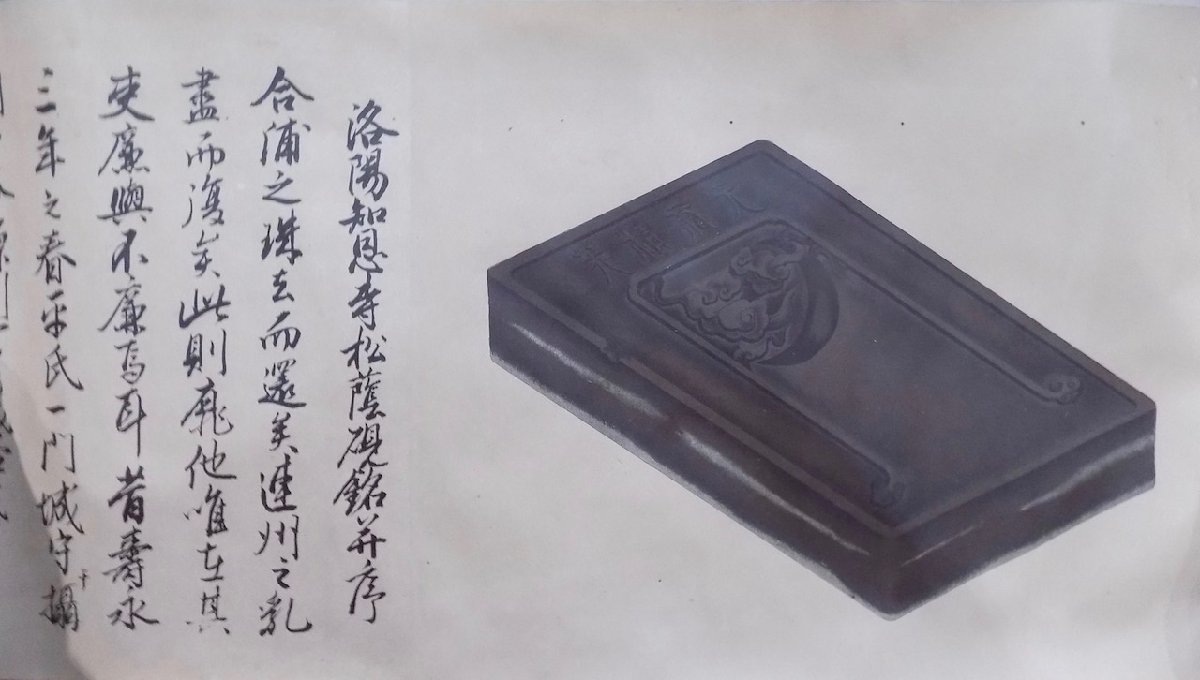 洛陽知恩寺松蔭硯銘并序
合浦之珠去而還矣連州之乳
盡而復矣此則靡他唯在其
吏廉與不廉焉耳昔壽永
三年之春平氏一門城守攝